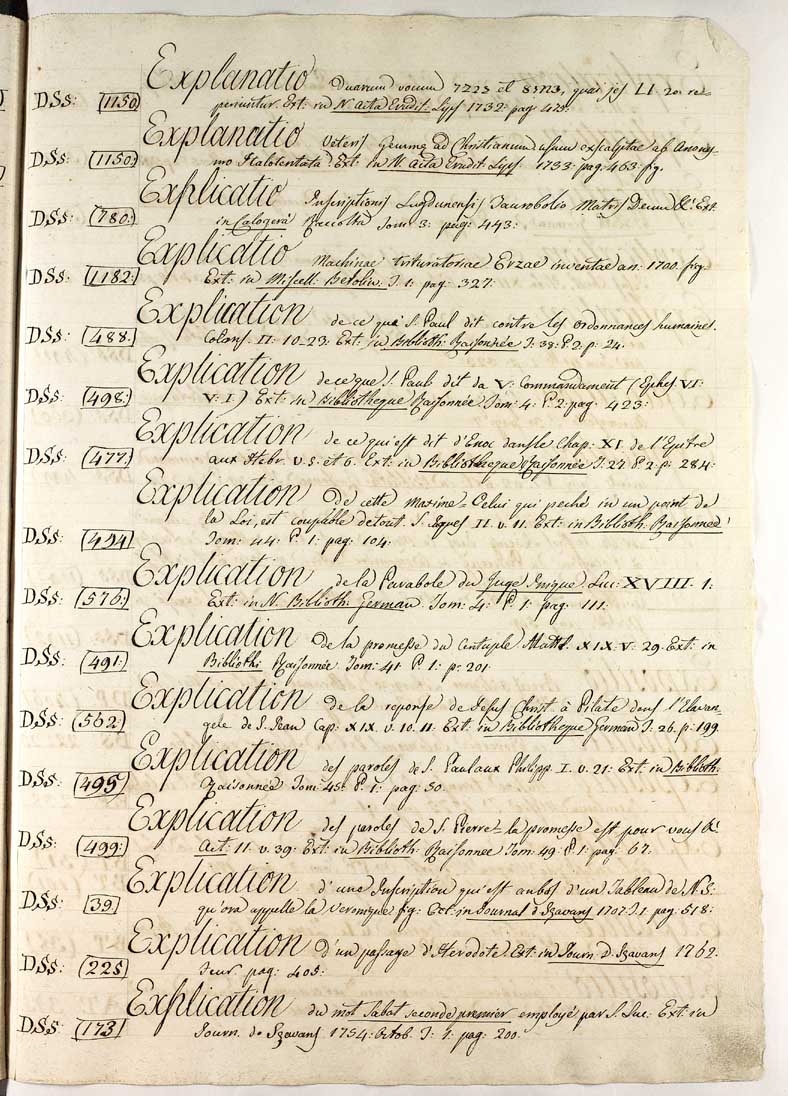 Explanatio duarum vocum 7223 et 8523, quai jes LI 20. re-
DSs: (1150) periuntur. Ext. in N. Acta Erudit. Lyps 1732. pag. 425.
Explanatio Veteris gemmae ad Christianum usum exscalptae ab Anony-
DSs: (1150:) mo Italo tentata. Ext. in N. Acta Erudit Lyps. 1733. pag. 463. fig.
Explicatio Inscriptionis Lugdunensis Taurobolio Matris Deum &c. Ext.
DSs: (780:) in Calogerà Raccolta Tom 3: pag: 443:
Explicatio Machinae trituratoriae Erzae inventae an: 1700. fig.
DSs: (1182:) Ext: in Miscell: Berolin: T. 1: pag: 327:
Explication de ce que S. Paul dit contre les ordonnances humaines.
DSs: (488:) Coloss II: 10-23: Ext: in Biblioth: Raisonnée T: 38: P. 2: p: 24.
Explication de ce que S. Paul dit da V: Commandament (Ephes VI:
DSs: (498:) V: I) Ext in Bibliotheque Raisonnée Tom: 4: P. 2: pag: 423:
Explication de ce qui est dit d'Enoc dans le Chap: XI. de l'Epitre
DSs: (477:) aux Hebr. v. 5. et 6. Ext: in Bibliotheque Raisonnée T: 27. P. 2: p: 284:
Explication de cette Maxime = Celui qui peché in un point de
la Loi, est coupable de tout. S. Jques II. v. 11. Ext: in Biblioth: Raisonneé
DSs: (494) Tom: 44: P: 1: pag: 104:
Explication de la Parabole du Juge Inique. Luc: XVIII. 1:
DSs: (576:) Ext: in N. Biblioth: German Tom: 4: P. 1: pag: 111:
Explication de la promesse du Centuple Matth. XIX. V: 29. Ext: in
DSs: (491:) Biblioth: Raisonnée Tom: 41. P. 1: p: 201.
Explication de la reponse de Jesus Christ à Pilate dans l'Elavan-
DSs: (562:) gele de S. Jean Cap: XIX. v. 10. 11. Ext: in Bibliotheque German T: 26. p: 199.
Explication des paroles de S. Paul aux Philipp. I. v. 21: Ext. in Biblioth:
DSs: (495) Raisonnée Tom: 45: P. 1: pag: 50.
Explication des paroles de S. Pierre = la promesse est pour vous &c.
DSs: (499:) Act: II. v. 39: Ext: in Biblioth: Raisonnee Tom: 49. P. 1: pag: 67.
Explication d'une Inscription qui est au bas d'un Tableau de N. S:
DSs: (39) qu'on appelle la Veronique fig: Ext: in Journal d. Szavans 1707. T. 1. pag: 518:
Explication d'un passage d'Herodote. Ext: in Journ. D. Szavans 1762.
DSs: (225) pag: 405:
Explication du mot Sabat second premier employé par S. Luc: Ext: in
DSs: (173) Journ. de Szavans 1754: Octob. T: 1: pag: 200.